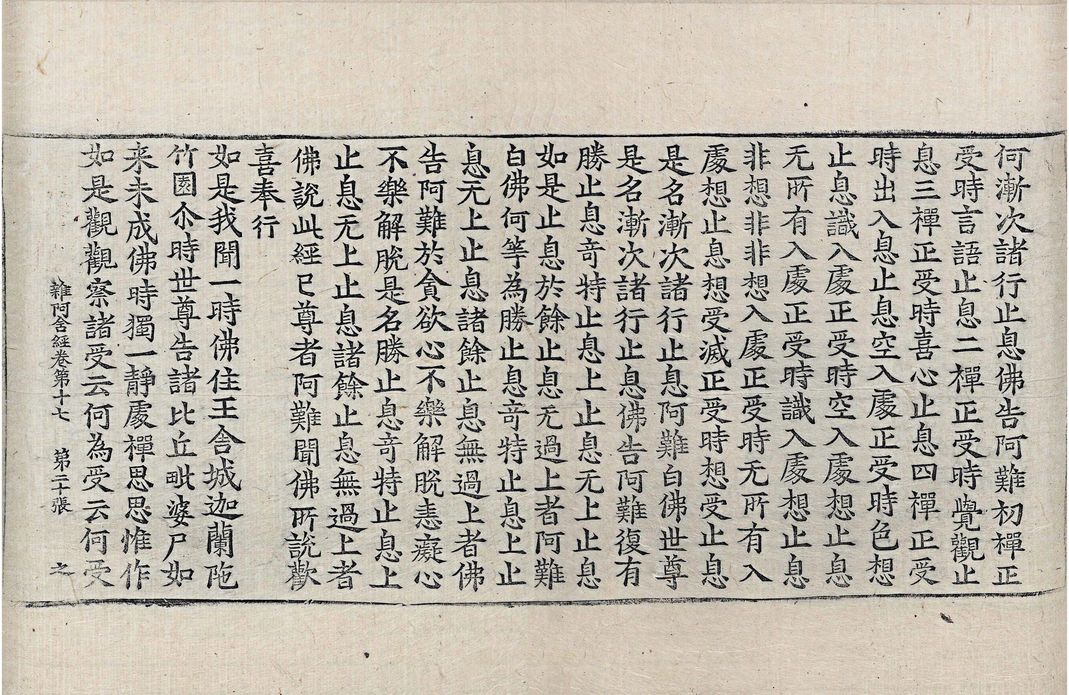 何漸次諸行止息佛告阿難初禪正
受時言語止息二禪正受時覺觀止
息三禪正受時喜心止息四禪正受
時出入息止息空入處正受時色想
止息識入處正受時空入處想止息
无所有入處正受時識入處想止息
非想非非想入處正受時无所有入
處想止息想受滅正受時想受止息
是名漸次諸行止息阿難白佛世尊
是名漸次諸行止息佛告阿難復有
勝止息竒特止息上止息无上止息
如是止息於餘止息无過上者阿難
白佛何等為勝止息竒特止息上止
息无上止息諸餘止息無過上者佛
告阿難於貪欲心不樂解脫恚癡心
不樂解脫是名勝止息竒特止息上
止息无上止息諸餘止息無過上者
佛說此經已尊者阿難聞佛所說歡
喜奉行
如是我聞一時佛住王舍城迦蘭陁
竹園尒時世尊告諸比丘毗婆尸如
来未成佛時獨一靜處禪思思惟作
如是觀觀察諸受云何為受云何受
雜阿含經卷第十七 第二十張 之